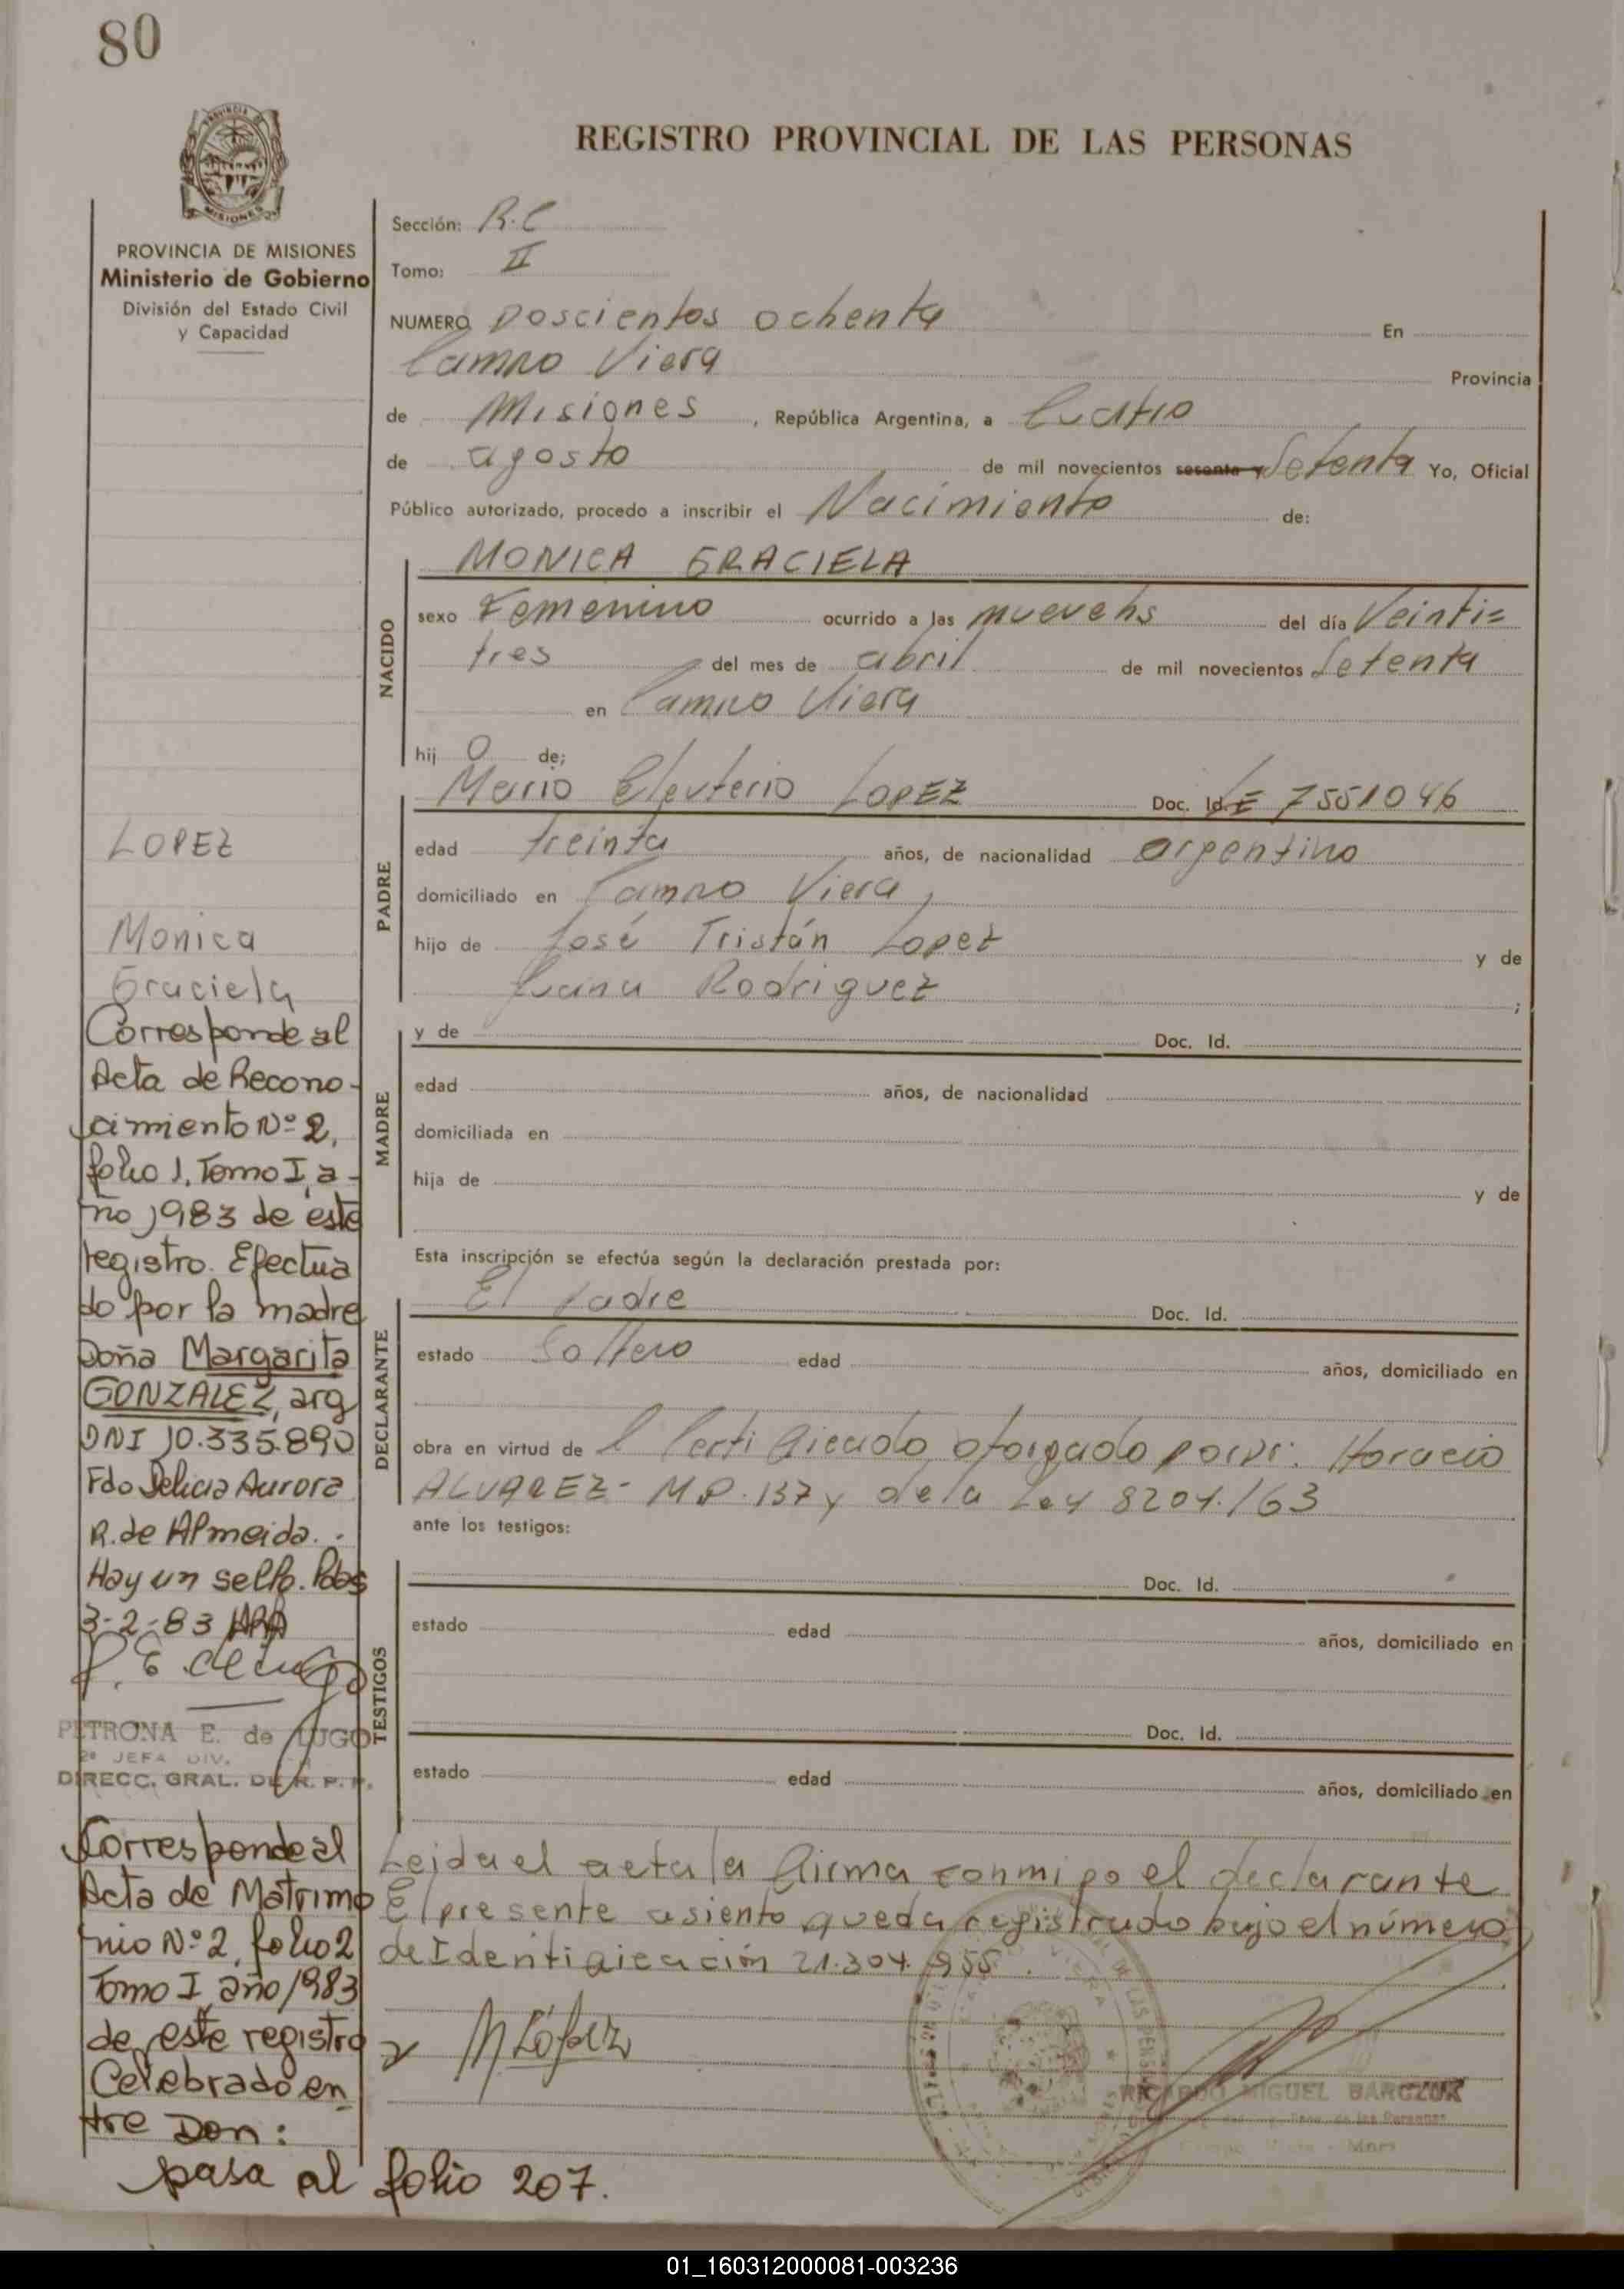 80
REGISTRO PROVINCIAL DE LAS PERSONAS
PROVINCIA DE MISIONES
Ministerio de Gobierno
División del Estado Civil
y Capacidad
Sección: R.C
Tomo: II
NUMERO Doscientos ochenta En
Campo Viera Provincia
de Misiones, República Argentina, a Cuatro
de agosto de mil novecientos sesenta y Setenta Yo, Oficial
Público autorizado, procedo a inscribir el Nacimiento de:
NACIDO
MONICA GRACIELA
sexo Femenino ocurrido a las nueve hs del día Veinti=
tres del mes de abril de mil novecientos Setenta
en Campo Viera
hij o de;
PADRE
Mario Eleuterio LOPEZ Doc. Id. LE 7551046
edad treinta años, de nacionalidad argentino
domiciliado en Campo Viera,
hijo de José Tristán Lopez y de
Juana Rodriguez ;
MADRE
y de Doc. Id.
edad años, de nacionalidad
domiciliada en
hija de y de
Esta inscripción se efectúa según la declaración prestada por:
DECLARANTE
El padre Doc. Id.
estado Soltero edad años, domiciliado en
obra en virtud de l Certificado otorgado por Dr: Horacio
ALVAREZ - M.P. 137 y de la Ley 8204/63
ante los testigos:
TESTIGOS
Doc. Id.
estado edad años, domiciliado en
Doc. Id.
estado edad años, domiciliado en
Leida el acta la firma conmigo el declarante
El presente asiento queda registrado bajo el número
de Identificación 21.304.955.
M López
RICARDO MIGUEL BARCZUK
LOPEZ
Monica
Graciela
Corresponde al
Acta de Recono-
cimiento Nº 2,
folio 1, Tomo I, a-
ño 1983 de este
registro. Efectua
do por la madre
Doña Margarita
GONZALEZ, arg
DNI 10.335.890
Fdo Delicia Aurora
R. de Almeida.
Hay un sello. Pdas
3-2-83
P. E. de Lugo
PETRONA E. de LUGO
2ª JEFA DIV.
DIRECC. GRAL. DE R. P. P.
Corresponde al
Acta de Matrimo
nio Nº 2, folio 2
Tomo I año 1983
de este registro
Celebrado en
tre Don:
pasa al folio 207.
01_160312000081-003236